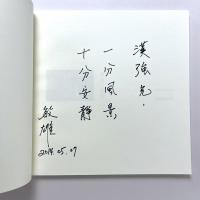 漢強兄，
一分風景
十分安靜
敏雄
2014.05.07